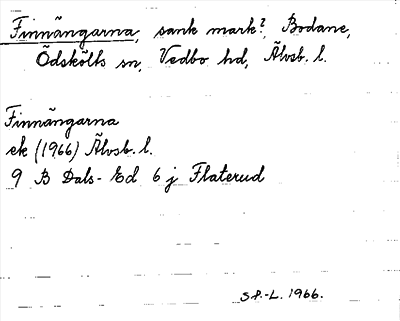 Finnängarna, sank mark?, Bodane,
Ödskölts sn, Vedbo hd, Älvsb. l.
Finnängarna
ek (1966) Älvsb. l.
9 B Dals-Ed 6 j Flaterud
S.P.-L. 1966.